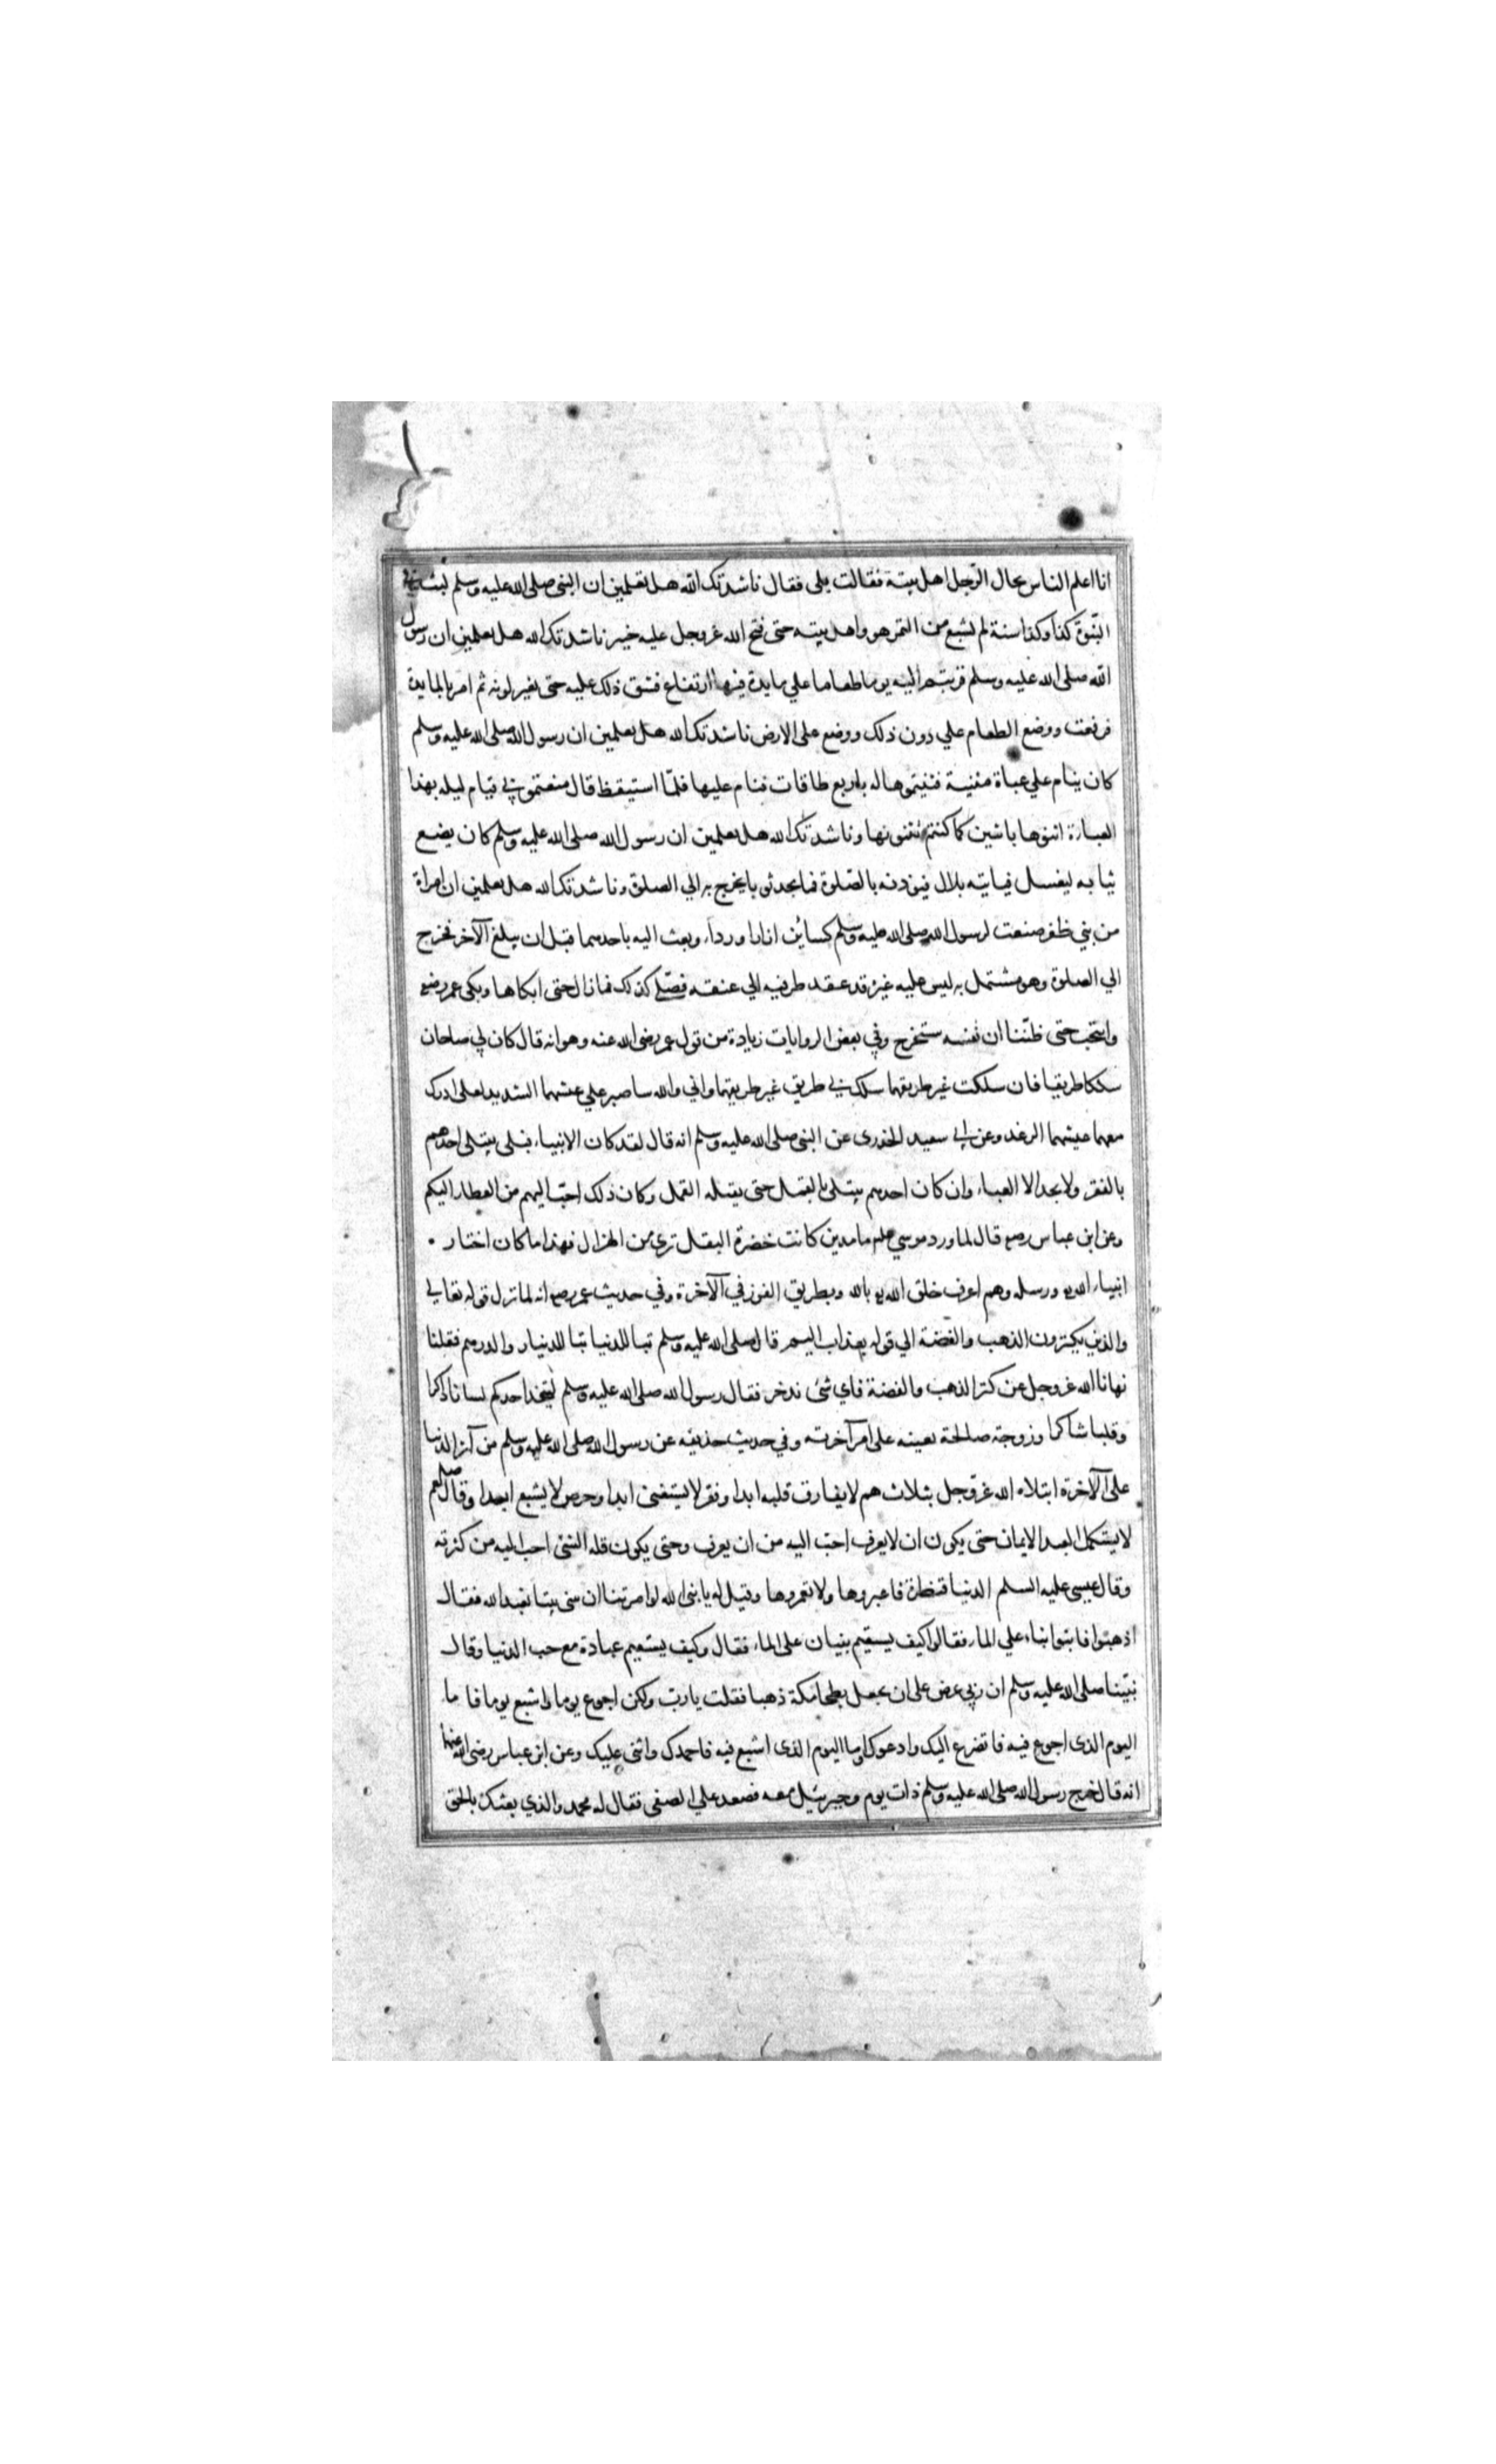 انا اعلم الناس بحال الرّجل اهل بيته فقالت بلى فقال ناشدتك الله هل تعلمين ان النبى صلى الله عليه وسلم لبث في
النّبوّة كذا وكذا سنة لم يشبع من التمر هو واهل بيته حتى فتح الله عز وجل عليه خيبر ناشدتك الله هل تعلمين ان رسول
الله صلى الله عليه وسلم قربتم اليه يوما طعاما علي مايدة فيها ارتفاع فشق ذلك عليه حتى تغير لونه ثم امر بالمايدة
فرفعت ووضع الطعام علي دون ذلك ووضع على الارض ناشدتك الله هل تعلمين ان رسول الله صلى الله عليه وسلم
كان ينام علي عباة مثنية فثنيتموها له باربع طاقات فنام عليها فلمّا استيقظ قال منعتموني قيام ليله بهذا
العباءة اثنوها باثنين كما كنتم تثنونها وناشدتك الله هل تعلمين ان رسول الله صلى الله عليه وسلم كان يضع
ثيابه ليغسل فياتيه بلال فيؤذنه بالصّلوة فما يجد ثوبا يخرج به الي الصلوة وناشدتك الله هل تعلمين ان امراة
من بني ظفر صنعت لرسول الله صلى الله عليه وسلم كسائين ازارا ورداء وبعث اليه باحدهما قبل ان يبلغ الآخر فخرج
الي الصلوة وهو مشتمل به ليس عليه غيره قد عقد طرفيه الي عنقه فصلّي كذلك فما زال حتى ابكاها وبكى عمر رضع
وانتحب حتى ظنّنا ان نفسه ستخرج وفي بعض الروايات زيادة من قول عمر رضى الله عنه وهو انه قال كان لي صاحبان
سلكا طريقا فان سلكت غير طريقهما سلك بي طريق غير طريقهما واني والله ساصبر علي عيشهما الشديد لعلى ادرك
معهما عيشهما الرغد وعن ابي سعيد الخدرى عن النبى صلى الله عليه وسلم انه قال لقد كان الانبياء قبلى يبتلى احدهم
بالفقر ولا يجد الا العباء وان كان احدهم يبتلى بالقمل حتى يقتله القمل وكان ذلك احبّ اليهم من العطاء اليكم
وعن ابن عباس رضع قال لما ورد موسي علم ماء مدين كانت خضرة البقل ترى من الهزال فهذا ما كان اختار
انبياء الله ورسله وهم اعرف خلق الله بالله وبطريق الفوز في الآخرة وفي حديث عمر رضع انه لما نزل قوله تعالي
والذين يكنزون الذهب والفضة الي قوله بعذاب اليم قال صلى الله عليه وسلم تبا للدنيا تبا للدينار والدرهم فقلنا
نهانا الله عز وجل عن كنز الذهب والفضة فاي شئ ندخر فقال رسول الله صلى الله عليه وسلم ليتخذ احدكم لسانا ذاكرا
وقلبا شاكرا وزوجة صالحة تعينه على امر آخرته وفي حديث حذيفه عن رسول الله صلى الله عليه وسلم من آثر الدنيا
على الآخرة ابتلاه الله عزّ وجل بثلاث هم لا يفارق قلبه ابدا وفقر لا يستغنى ابدا وحرص لا يشبع ابدا وقال صلعم
لا يستكمل العبد الايمان حتى يكون ان لا يعرف احبّ اليه من ان يعرف وحتى يكون قلة الشئ احب اليه من كثرته
وقال عيسى عليه السلم الدنيا قنطرة فاعبروها ولا تعمروها وقيل له يا نبى الله لو امرتنا ان نبنى بيتا نعبد الله فقال
اذهبوا فابنوا بناء علي الماء فقالوا كيف يستقيم بنيان على الماء فقال وكيف يستقيم عبادة مع حب الدنيا وقال
نبيّنا صلى الله عليه وسلم ان ربي عرض على ان يجعل بطحا مكة ذهبا فقلت يا ربّ ولكن اجوع يوما واشبع يوما فا ما
اليوم الذى اجوع فيه فاتضرع اليك وادعوك واما اليوم الذى اشبع فيه فاحمدك واثنى عليك وعن ابن عباس رضى الله عنهما
انه قال خرج رسول الله صلى الله عليه وسلم ذات يوم وجبرئيل معه فصعد علي الصفى فقال له محمد والذي بعثك بالحق